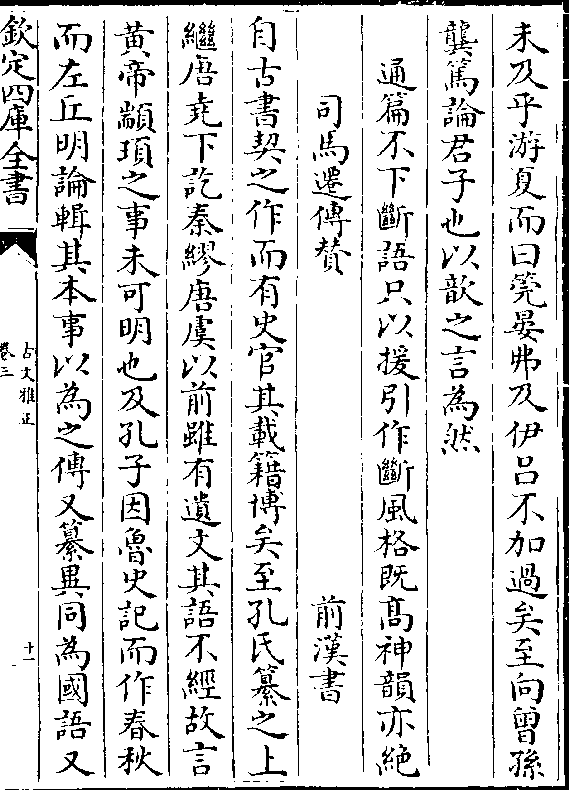 未及乎游夏而曰筦晏弗及伊吕不加過矣至向曽孫
龔篤論君子也以歆之言為然
通篇不下斷語只以援引作斷風格既髙神韻亦絶
司馬遷傳賛 前漢書
自古書契之作而有史官其載籍博矣至孔氏纂之上
繼唐尭下訖秦繆唐虞以前雖有遺文其語不經故言
黄帝顓頊之事未可明也及孔子因魯史記而作春秋
而左丘明論輯其本事以為之傳又纂異同為國語又
欽定四庫全書
古文雅正
卷三
十一